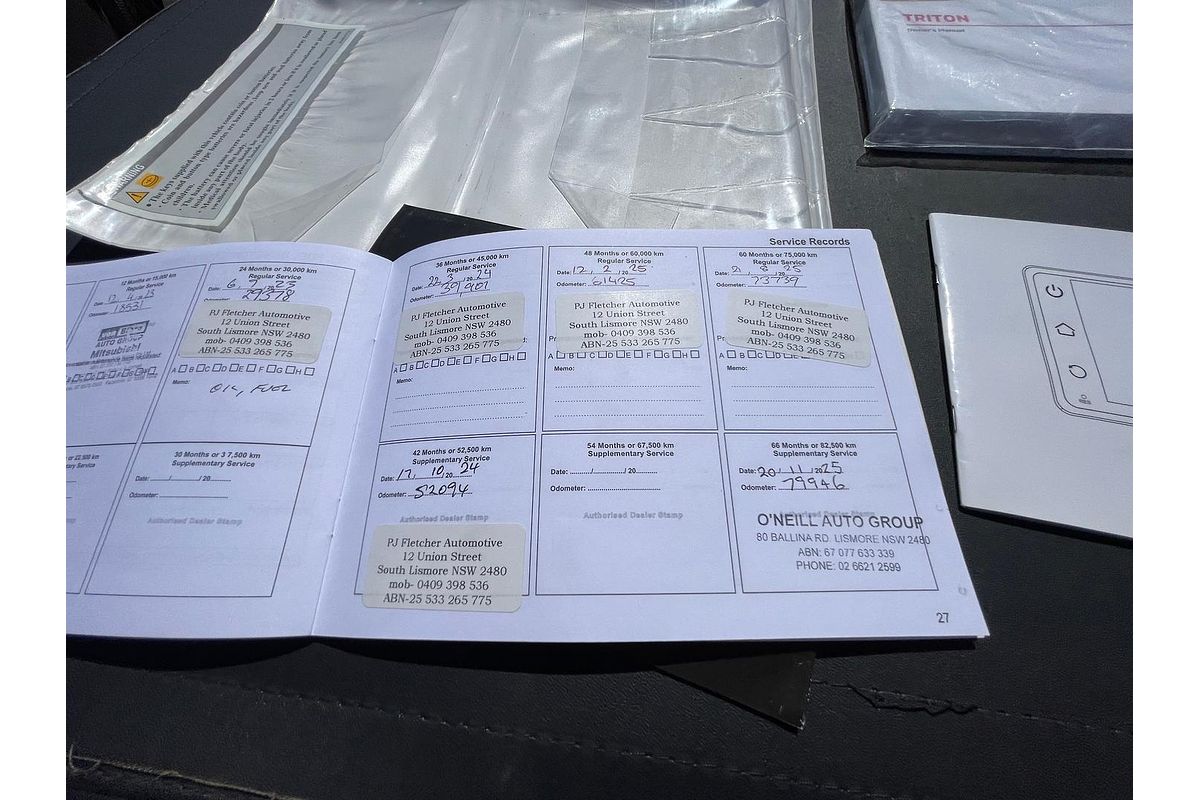 TRITON
Owner's Manual
WARNING
• The keys supplied with this vehicle contain coin or button batteries.
• Coin and button type batteries are hazardous, keep new and used batteries away from
children.
Service Records
12 Months or 15,000 km
Regular Service
Date: 12 4 23
Odometer: 13531
AUTO GROUP
Mitsubishi
24 Months or 30,000 km
Regular Service
Date: 6, 9 23
Odometer: 29378
PJ Fletcher Automotive
12 Union Street
South Lismore NSW 2480
mob- 0409 398 536
ABN-25 533 265 775
A B C D E F G H
Memo:
OIL, FUEL
36 Months or 45,000 km
Regular Service
Date: 22 3 /20 24
Odometer: 39,901
PJ Fletcher Automotive
12 Union Street
South Lismore NSW 2480
mob- 0409 398 536
ABN-25 533 265 775
A B C D E F G H
Memo:
48 Months or 60,000 km
Regular Service
Date: 12, 2 /20 25
Odometer: 61425
PJ Fletcher Automotive
12 Union Street
South Lismore NSW 2480
mob- 0409 398 536
ABN-25 533 265 775
A B C D E F G H
Memo:
60 Months or 75,000 km
Regular Service
Date: 21 8 25
Odometer: 73739
PJ Fletcher Automotive
12 Union Street
South Lismore NSW 2480
mob- 0409 398 536
ABN-25 533 265 775
A B C D E F G H
Memo:
22,500 km
Service
30 Months or 3 7,500 km
Supplementary Service
Date: ......./............/ 20......
Odometer: ..............................
Authorised Dealer Stamp
42 Months or 52,500 km
Supplementary Service
Date: 17, 10 /20 24
Odometer: 52094
Authorised Dealer Stamp
PJ Fletcher Automotive
12 Union Street
South Lismore NSW 2480
mob- 0409 398 536
ABN-25 533 265 775
54 Months or 67,500 km
Supplementary Service
Date: ......./............/ 20......
Odometer: ..............................
Authorised Dealer Stamp
66 Months or 82,500 km
Supplementary Service
Date: 20, 11 /2025
Odometer: 79946
Authorised Dealer Stamp
O'NEILL AUTO GROUP
80 BALLINA RD. LISMORE NSW 2480
ABN: 67 077 633 339
PHONE: 02 6621 2599
27